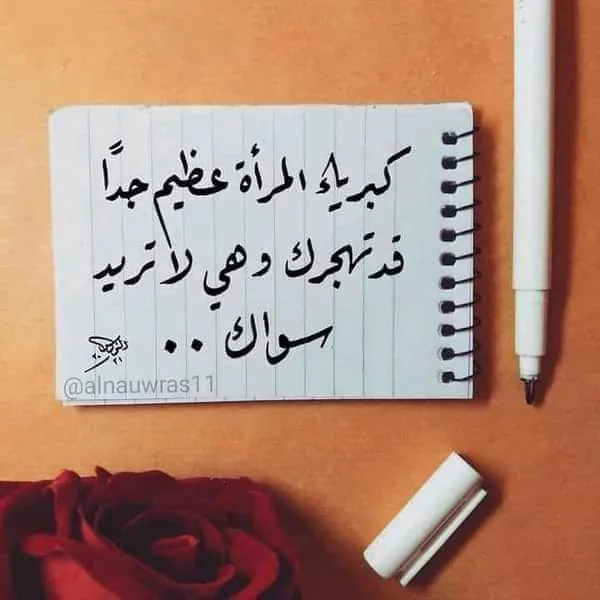 كبرياء المرأة عظيم جداً
قد تهجرك وهي لا تريد
سواك ..
@alnauwras11